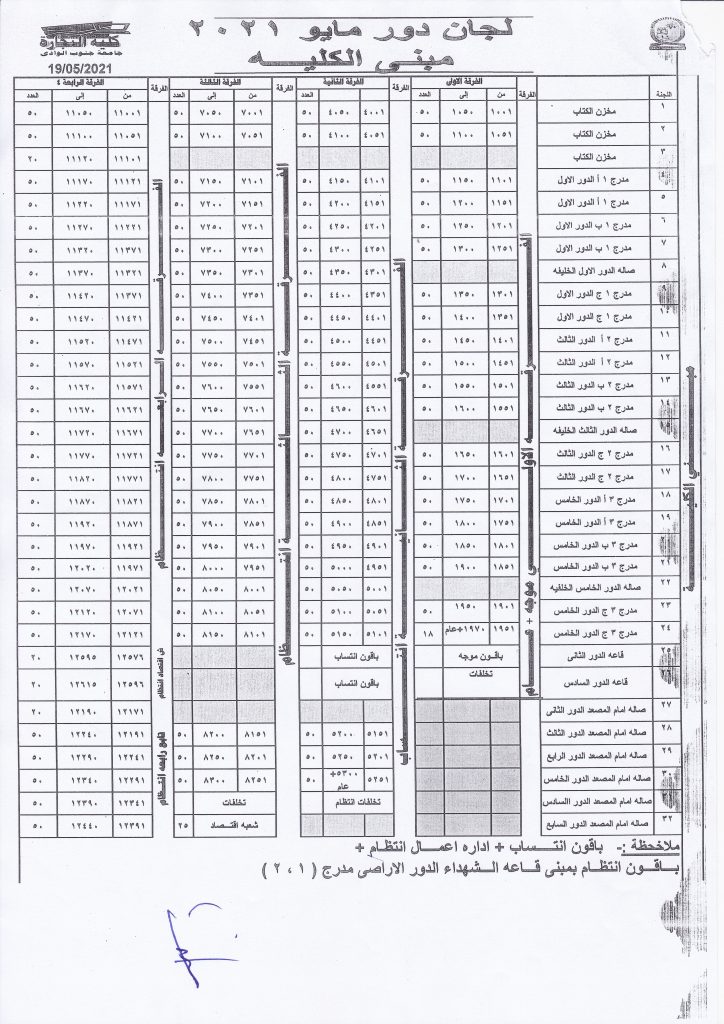 لجان دور مايو ٢٠٢١
مبنى الكليه
كلية التجارة
جامعة جنوب الوادى
19/05/2021
اللجنة الفرقة الفرقة الاولى الفرقة الفرقة الثانية الفرقة الفرقة الثالثة الفرقة الفرقة الرابعة ٤
من إلى العدد من إلى العدد من إلى العدد
١ مخزن الكتاب ١٠٠١ ١٠٥٠ ٥٠ ٤٠٠١ ٤٠٥٠ ٥٠ ٧٠٠١ ٧٠٥٠ ٥٠ ١١٠٠١ ١١٠٥٠ ٥٠
٢ مخزن الكتاب ١٠٥١ ١١٠٠ ٥٠ ٤٠٥١ ٤١٠٠ ٥٠ ٧٠٥١ ٧١٠٠ ٥٠ ١١٠٥١ ١١١٠٠ ٥٠
٣ مخزن الكتاب ١١١٠١ ١١١٢٠ ٢٠
٤ مدرج ١ أ الدور الاول ١١٠١ ١١٥٠ ٥٠ ٤١٠١ ٤١٥٠ ٥٠ ٧١٠١ ٧١٥٠ ٥٠ ١١١٢١ ١١١٧٠ ٥٠
٥ مدرج ١ أ الدور الاول ١١٥١ ١٢٠٠ ٥٠ ٤١٥١ ٤٢٠٠ ٥٠ ٧١٥١ ٧٢٠٠ ٥٠ ١١١٧١ ١١٢٢٠ ٥٠
٦ مدرج ١ ب الدور الاول ١٢٠١ ١٢٥٠ ٥٠ ٤٢٠١ ٤٢٥٠ ٥٠ ٧٢٠١ ٧٢٥٠ ٥٠ ١١٢٢١ ١١٢٧٠ ٥٠
٧ مدرج ١ ب الدور الاول ١٢٥١ ١٣٠٠ ٥٠ ٤٢٥١ ٤٣٠٠ ٥٠ ٧٢٥١ ٧٣٠٠ ٥٠ ١١٣٧١ ١١٣٢٠ ٥٠
٨ صاله الدور الاول الخليفه ٤٣٠١ ٤٣٥٠ ٥٠ ٧٣٠١ ٧٣٥٠ ٥٠ ١١٣٢١ ١١٣٧٠ ٥٠
٩ مدرج ١ ج الدور الاول ١٣٠١ ١٣٥٠ ٥٠ ٤٣٥١ ٤٤٠٠ ٥٠ ٧٣٥١ ٧٤٠٠ ٥٠ ١١٣٧١ ١١٤٢٠ ٥٠
١٠ مدرج ١ ج الدور الاول ١٣٥١ ١٤٠٠ ٥٠ ٤٤٠١ ٤٤٥٠ ٥٠ ٧٤٠١ ٧٤٥٠ ٥٠ ١١٤٢١ ١١٤٧٠ ٥٠
١١ مدرج ٢ أ الدور الثالث ١٤٠١ ١٤٥٠ ٥٠ ٤٤٥١ ٤٥٠٠ ٥٠ ٧٤٥١ ٧٥٠٠ ٥٠ ١١٤٧١ ١١٥٢٠ ٥٠
١٢ مدرج ٢ أ الدور الثالث ١٤٥١ ١٥٠٠ ٥٠ ٤٥٠١ ٤٥٥٠ ٥٠ ٧٥٠١ ٧٥٥٠ ٥٠ ١١٥٢١ ١١٥٧٠ ٥٠
١٣ مدرج ٢ ب الدور الثالث ١٥٠١ ١٥٥٠ ٥٠ ٤٥٥١ ٤٦٠٠ ٥٠ ٧٥٥١ ٧٦٠٠ ٥٠ ١١٥٧١ ١١٦٢٠ ٥٠
١٤ مدرج ٢ ب الدور الثالث ١٥٥١ ١٦٠٠ ٥٠ ٤٦٠١ ٤٦٥٠ ٥٠ ٧٦٠١ ٧٦٥٠ ٥٠ ١١٦٢١ ١١٦٧٠ ٥٠
صاله الدور الثالث الخليفه ٤٦٥١ ٤٧٠٠ ٥٠ ٧٦٥١ ٧٧٠٠ ٥٠ ١١٦٧١ ١١٧٢٠ ٥٠
١٦ مدرج ٢ ج الدور الثالث ١٦٠١ ١٦٥٠ ٥٠ ٤٧٠١ ٤٧٥٠ ٥٠ ٧٧٠١ ٧٧٥٠ ٥٠ ١١٧٢١ ١١٧٧٠ ٥٠
١٧ مدرج ٢ ج الدور الثالث ١٦٥١ ١٧٠٠ ٥٠ ٤٧٥١ ٤٨٠٠ ٥٠ ٧٧٥١ ٧٨٠٠ ٥٠ ١١٧٧١ ١١٨٢٠ ٥٠
١٨ مدرج ٣ أ الدور الخامس ١٧٠١ ١٧٥٠ ٥٠ ٤٨٠١ ٤٨٥٠ ٥٠ ٧٨٠١ ٧٨٥٠ ٥٠ ١١٨٢١ ١١٨٧٠ ٥٠
١٩ مدرج ٣ أ الدور الخامس ١٧٥١ ١٨٠٠ ٥٠ ٤٨٥١ ٤٩٠٠ ٥٠ ٧٨٥١ ٧٩٠٠ ٥٠ ١١٨٧١ ١١٩٢٠ ٥٠
مدرج ٣ ب الدور الخامس ١٨٠١ ١٨٥٠ ٥٠ ٤٩٠١ ٤٩٥٠ ٥٠ ٧٩٠١ ٧٩٥٠ ٥٠ ١١٩٢١ ١١٩٧٠ ٥٠
مدرج ٣ ب الدور الخامس ١٨٥١ ١٩٠٠ ٥٠ ٤٩٥١ ٥٠٠٠ ٥٠ ٧٩٥١ ٨٠٠٠ ٥٠ ١١٩٧١ ١٢٠٢٠ ٥٠
٢٢ صاله الدور الخامس الخلفيه ٥٠٠١ ٥٠٥٠ ٥٠ ٨٠٠١ ٨٠٥٠ ٥٠ ١٢٠٢١ ١٢٠٧٠ ٥٠
٢٣ مدرج ٣ ج الدور الخامس ١٩٠١ ١٩٥٠ ٥٠ ٥٠٥١ ٥١٠٠ ٥٠ ٨٠٥١ ٨١٠٠ ٥٠ ١٢٠٧١ ١٢١٢٠ ٥٠
٢٤ مدرج ٣ ج الدور الخامس ١٩٥١ ١٩٧٠+عام ١٨ ٥١٠١ ٥١٥٠ ٥٠ ٨١٠١ ٨١٥٠ ٥٠ ١٢١٢١ ١٢١٧٠ ٥٠
٢٥ قاعه الدور الثانى باقون موجه باقون انتساب ١٢٥٧٦ ١٢٥٩٥ ٢٠
قاعه الدور السادس تخلفات باقون انتساب ١٢٥٩٦ ١٢٦١٥ ٢٠
٢٧ صاله امام المصعد الدور الثانى ١٢١٧١ ١٢١٩٠ ٢٠
٢٨ صاله امام المصعد الدور الثالث ٥١٥١ ٥٢٠٠ ٥٠ ٨١٥١ ٨٢٠٠ ٥٠ ١٢١٩١ ١٢٢٤٠ ٥٠
٢٩ صاله امام المصعد الدور الرابع ٥٢٠١ ٥٢٥٠ ٥٠ ٨٢٠١ ٨٢٥٠ ٥٠ ١٢٢٤١ ١٢٢٩٠ ٥٠
٣٠ صاله امام المصعد الدور الخامس ٥٢٥١ ٥٣٠٠+ عام ٥٠ ٨٢٥١ ٨٣٠٠ ٥٠ ١٢٢٩١ ١٢٣٤٠ ٥٠
صاله امام المصعد الدور السادس تخلفات انتظام تخلفات ١٢٣٤١ ١٢٣٩٠ ٥٠
٣٢ صاله امام المصعد الدور السابع شعبه اقتصاد ٢٥ ١٢٣٩١ ١٢٤٤٠ ٥٠
مبنى الكلية
الفرقه الاولى موجه + عام
الفرقة الثانية انتساب
الفرقة الثالثة انتظام
الفرقه الرابعه انتظام
ش اقتصاد انتظام
تابع رابعه انتظام
ملاحظة :- باقون انتساب + اداره اعمال انتظام +
باقون انتظام بمبنى قاعه الشهداء الدور الاراضى مدرج ( ١ ، ٢ )